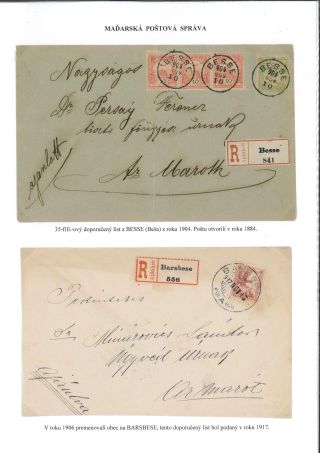 MAĎARSKÁ POŠTOVÁ SPRÁVA
BESSE
BESSE
BESSE
Nagyságos
Dr Persay Ferencz
úrnak
ajánlott
Az Maroth
R
Besse
841
35-fill.-ový doporučený list z BESSE (Beša) z roku 1904. Poštu otvorili v roku 1884.
R
Barsbese
556
Dr
Minárovics Sándor
Ügyvéd Urnak
Ar Marót
V roku 1906 premenovali obec na BARSBESE, tento doporučený list bol podaný v roku 1917.